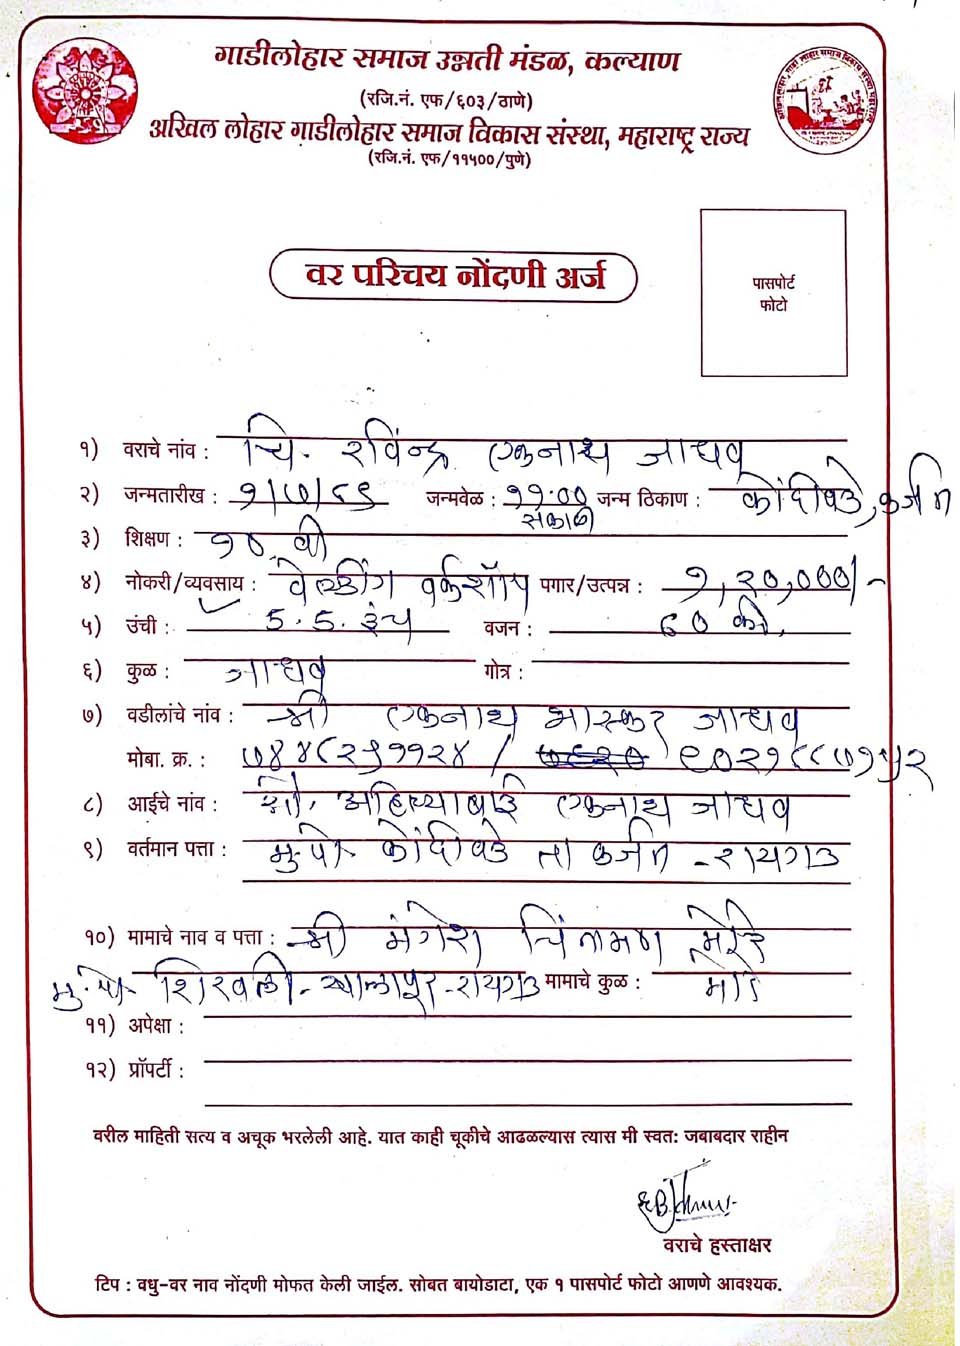 गाडीलोहार समाज उन्नती मंडळ, कल्याण
(रजि.नं. एफ/६०३/ठाणे)
अखिल लोहार गाडीलोहार समाज विकास संस्था, महाराष्ट्र राज्य
(रजि.नं. एफ/११५००/पुणे)
पासपोर्ट
फोटो
वर परिचय नोंदणी अर्ज
१) वराचे नांव : चि. रविंन्द्र एकनाथ जाधव
२) जन्मतारीख : १/७/८९ जन्मवेळ : ११:०० सकाळी जन्म ठिकाण : कोंदीवडे, कर्जत
३) शिक्षण : १० वी
४) नोकरी/व्यवसाय : वेल्डींग वर्कशॉप पगार/उत्पन्न : १,२०,०००/-
५) उंची : 5.5. इंच वजन : ६० की.
६) कुळ : जाधव गोत्र :
७) वडीलांचे नांव : श्री एकनाथ भास्कर जाधव
मोबा. क्र. :
८) आईचे नांव : सौ. अहिल्याबाई एकनाथ जाधव
९) वर्तमान पत्ता : मु.पो- कोंदीवडे ता कर्जत -रायगड
१०) मामाचे नाव व पत्ता : श्री मंगेश चिंतामण मोरे
मु.पो- शिरवली- खालापूर-रायगड मामाचे कुळ : मोरे
११) अपेक्षा :
१२) प्रॉपर्टी :
वरील माहिती सत्य व अचूक भरलेली आहे. यात काही चूकीचे आढळल्यास त्यास मी स्वत: जबाबदार राहीन
वराचे हस्ताक्षर
टिप : वधु-वर नाव नोंदणी मोफत केली जाईल. सोबत बायोडाटा, एक १ पासपोर्ट फोटो आणणे आवश्यक.